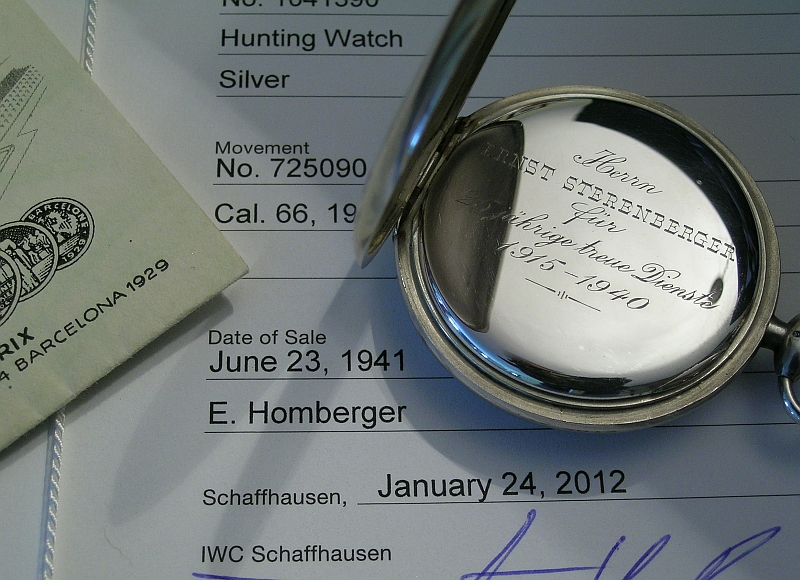 No. 1041390
Hunting Watch
Silver
Movement
No. 725090
Cal. 66, 19
Date of Sale
June 23, 1941
E. Homberger
Schaffhausen, January 24, 2012
IWC Schaffhausen
Herrn
ERNST STERENBERGER
für
25jährige treue Dienste
1915-1940
BARCELONA
RIX
4 BARCELONA 1929